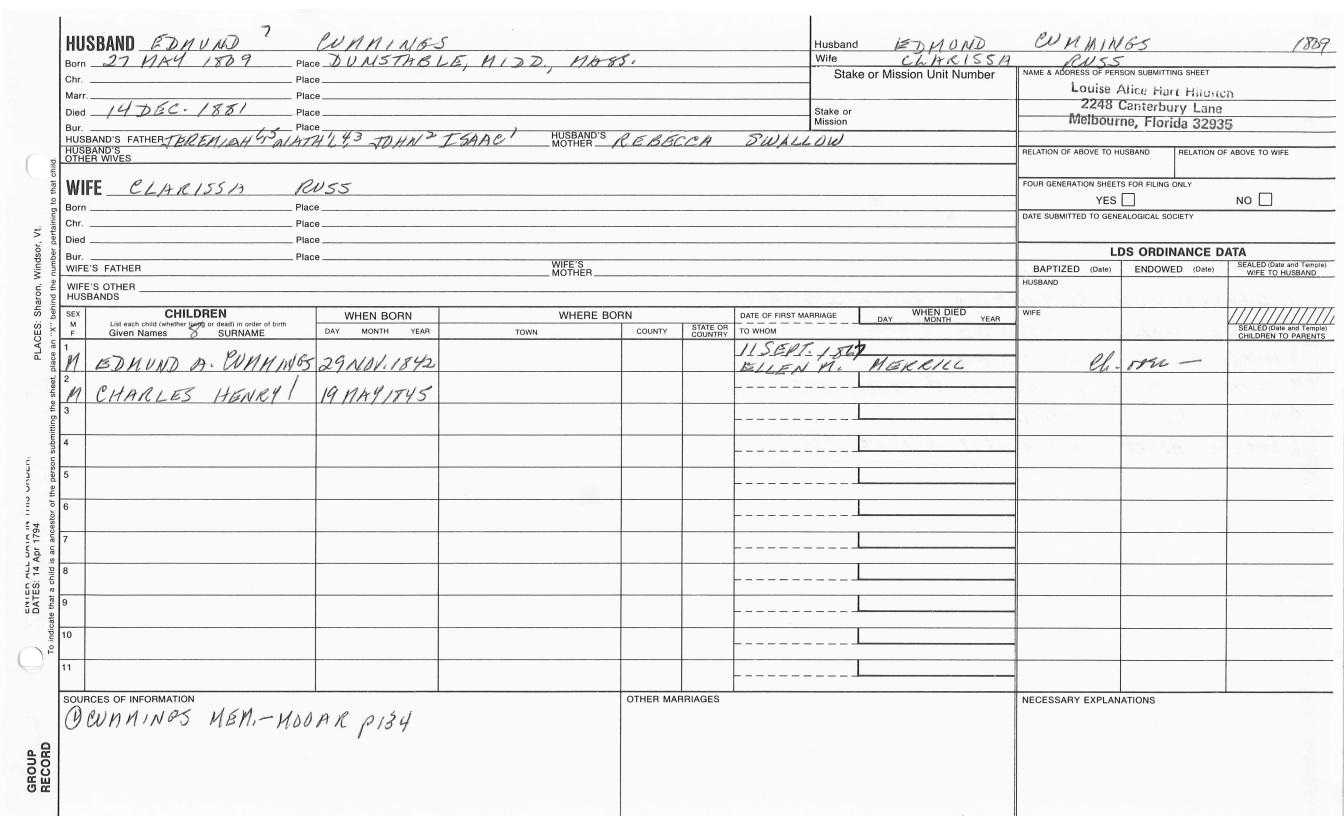 HUSBAND EDMUND 7 CUMMINGS
Born 27 MAY 1809 Place DUNSTABLE, MIDD, MASS.
Chr. Place
Marr. Place
Died 14 DEC. 1881 Place
Bur. Place
HUSBAND'S FATHER JEREMIAH 6,5 NATH'L 4,3 JOHN 2 ISAAC 1 HUSBAND'S MOTHER REBECCA SWALLOW
HUSBAND'S OTHER WIVES
WIFE CLARISSA RUSS
Born Place
Chr. Place
Died Place
Bur. Place
WIFE'S FATHER WIFE'S MOTHER
WIFE'S OTHER HUSBANDS
Husband EDMUND CUMMINGS 1809
Wife CLARISSA RUSS
Stake or Mission Unit Number
Stake or Mission
NAME & ADDRESS OF PERSON SUBMITTING SHEET
Louise Alice Hart
2248 Canterbury Lane
Melbourne, Florida 32935
RELATION OF ABOVE TO HUSBAND RELATION OF ABOVE TO WIFE
FOUR GENERATION SHEETS FOR FILING ONLY
YES NO
DATE SUBMITTED TO GENEALOGICAL SOCIETY
LDS ORDINANCE DATA
BAPTIZED (Date) ENDOWED (Date) SEALED (Date and Temple) WIFE TO HUSBAND
HUSBAND
WIFE
SEALED (Date and Temple) CHILDREN TO PARENTS
SEX M F
CHILDREN
List each child (whether living or dead) in order of birth
Given Names 8 SURNAME
WHEN BORN
DAY MONTH YEAR
WHERE BORN
TOWN COUNTY STATE OR COUNTRY
DATE OF FIRST MARRIAGE
TO WHOM
WHEN DIED
DAY MONTH YEAR
1 M EDMUND A. CUMMINGS 29 NOV. 1842 11 SEPT. 1867
ELLEN M. MERRILL
2 M CHARLES HENRY 19 MAY 1845
3
4
5
6
7
8
9
10
11
SOURCES OF INFORMATION
① CUMMINGS MEM.-MOOAR p134
OTHER MARRIAGES
NECESSARY EXPLANATIONS
PLACES: Sharon, Windsor, Vt.
ENTER ALL DATA IN THIS ORDER:
DATES: 14 Apr 1794
To indicate that a child is an ancestor of the person submitting the sheet, place an "X" behind the number pertaining to that child.
GROUP RECORD